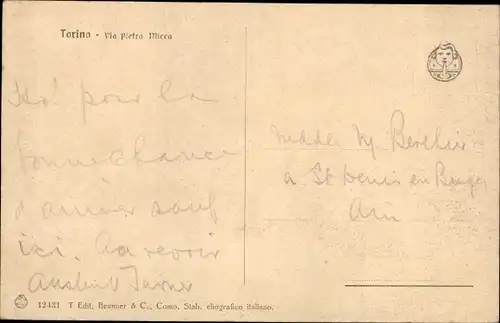 Torino - Via Pietro Micca
pour la
bonne chance
d'arriver sauf
ici. Au revoir
Berthier
a St Denis en Bugey
Ain
12431 T Edit. Brunner & C., Como. Stab. eliografico italiano.